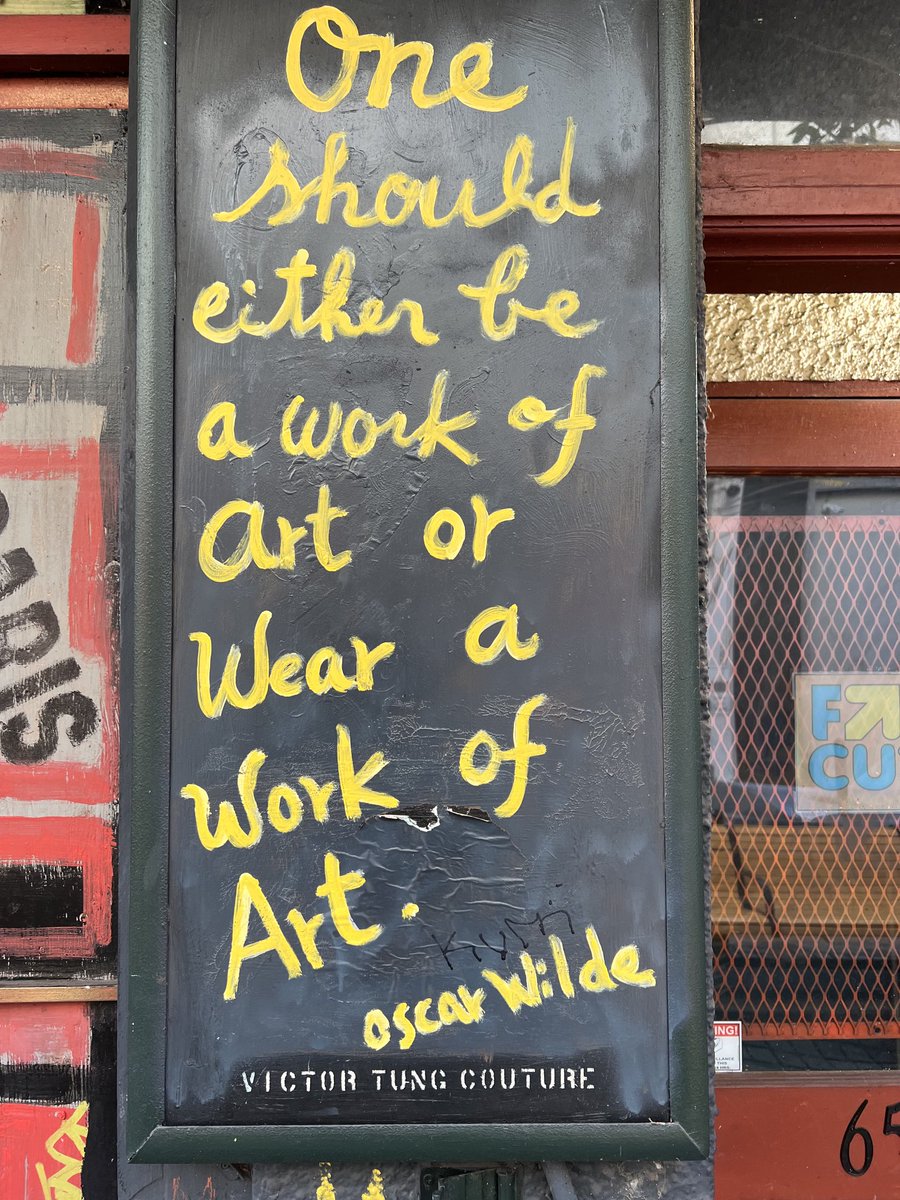 One
should
either be
a work of
art or
Wear a
Work of
Art.
KUMi
oscar Wilde
VICTOR TUNG COUTURE
PARIS
F
CU
NG!
THIS
65